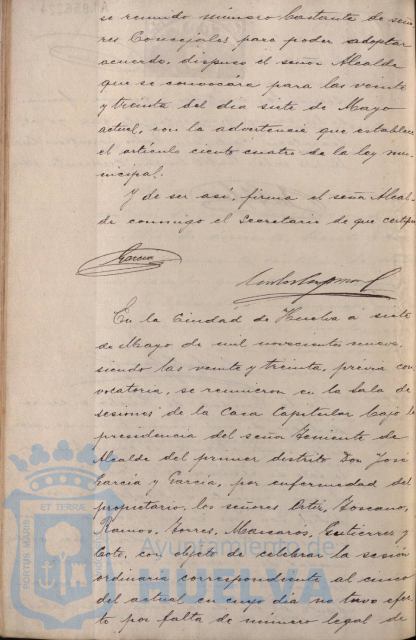 se reunido número bastante de seño
res Concejales para poder adoptar
acuerdo, dispuso el señor Alcalde
que se convocára para las veinte
y treinta del dia siete de Mayo
actual, con la advertencia que establece
el artículo ciento cuatro de la ley mu-
nicipal.
Y de ser así, firma el señor Alcal-
de conmigo el Secretario de que certifico
García
En la Ciudad de Huelva á siete
de Mayo de mil novecientos nueve,
siendo las veinte y treinta, prévia con
vocatoria, se reunieron en la Sala de
sesiones de la Casa Capitular bajo la
presidencia del señor Teniente de
Alcalde del primer distrito Don José
García y García, por enfermedad del
propietario, los señores Ortiz, Toscano,
Ramos, Torres, Macarios, Gutierrez y
Coto, con objeto de celebrar la sesión
ordinaria correspondiente al cinco
del actual en cuyo dia no tuvo efec
to por falta de número legal de
PORTUS MARIS
ET TERRAE
Ayuntamiento de
HUELVA